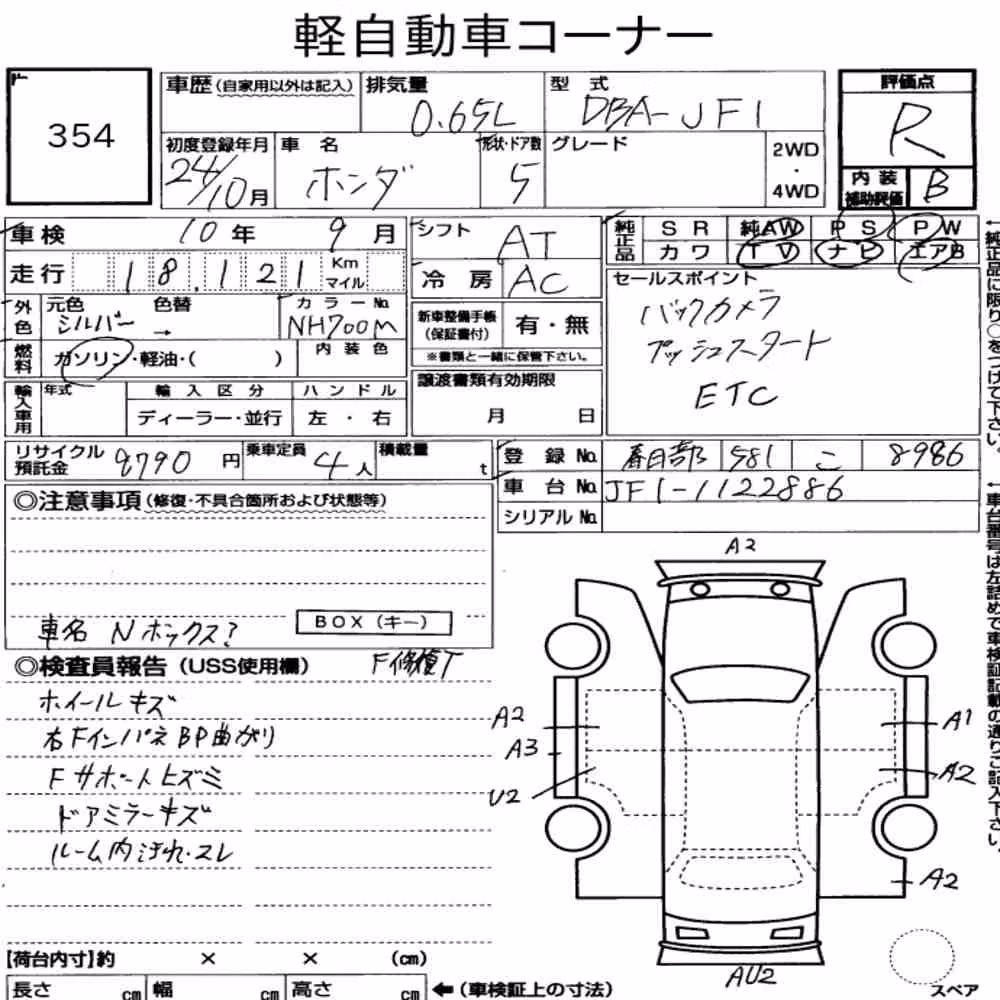 軽自動車コーナー
354
車歴 (自家用以外は記入)
排気量
0.65L
型式
DBA-JF1
評価点
R
初度登録年月
24/10月
車名
ホンダ
形状・ドア数
5
グレード
2WD
・
4WD
内装
補助評価
B
車検 10年 9月
シフト
AT
純正品
SR 純AW PS PW
カワ TV ナビ エアB
走行 18,121 Km
マイル
冷房
AC
セールスポイント
バックカメラ
プッシュスタート
ETC
外色
元色 色替
シルバー →
カラーNo.
NH700M
新車整備手帳
(保証書付)
有・無
※書類と一緒に保管下さい。
燃料
ガソリン・軽油・( )
内装色
輸入車用
年式
輸入区分
ディーラー・並行
ハンドル
左・右
譲渡書類有効期限
月 日
リサイクル
預託金
8790円
乗車定員
4人
積載量
t
登録No. 春日部 581 こ 8986
車台No. JF1-1122886
シリアルNo.
←純正品に限り○をつけて下さい。
←車台番号は左詰めで車検証記載の通りご記入下さい。
◎注意事項 (修復・不具合箇所および状態等)
車名 Nボックス?
BOX (キー)
◎検査員報告 (USS使用欄)
F修復T
ホイールキズ
右FインパネBP曲がり
Fサポートヒズミ
ドアミラーキズ
ルーム内汚れ・スレ
A2
A2
A3
U2
A1
A2
A2
AU2
スペア
【荷台内寸】約 × × (cm)
長さ cm 幅 cm 高さ cm ←(車検証上の寸法)